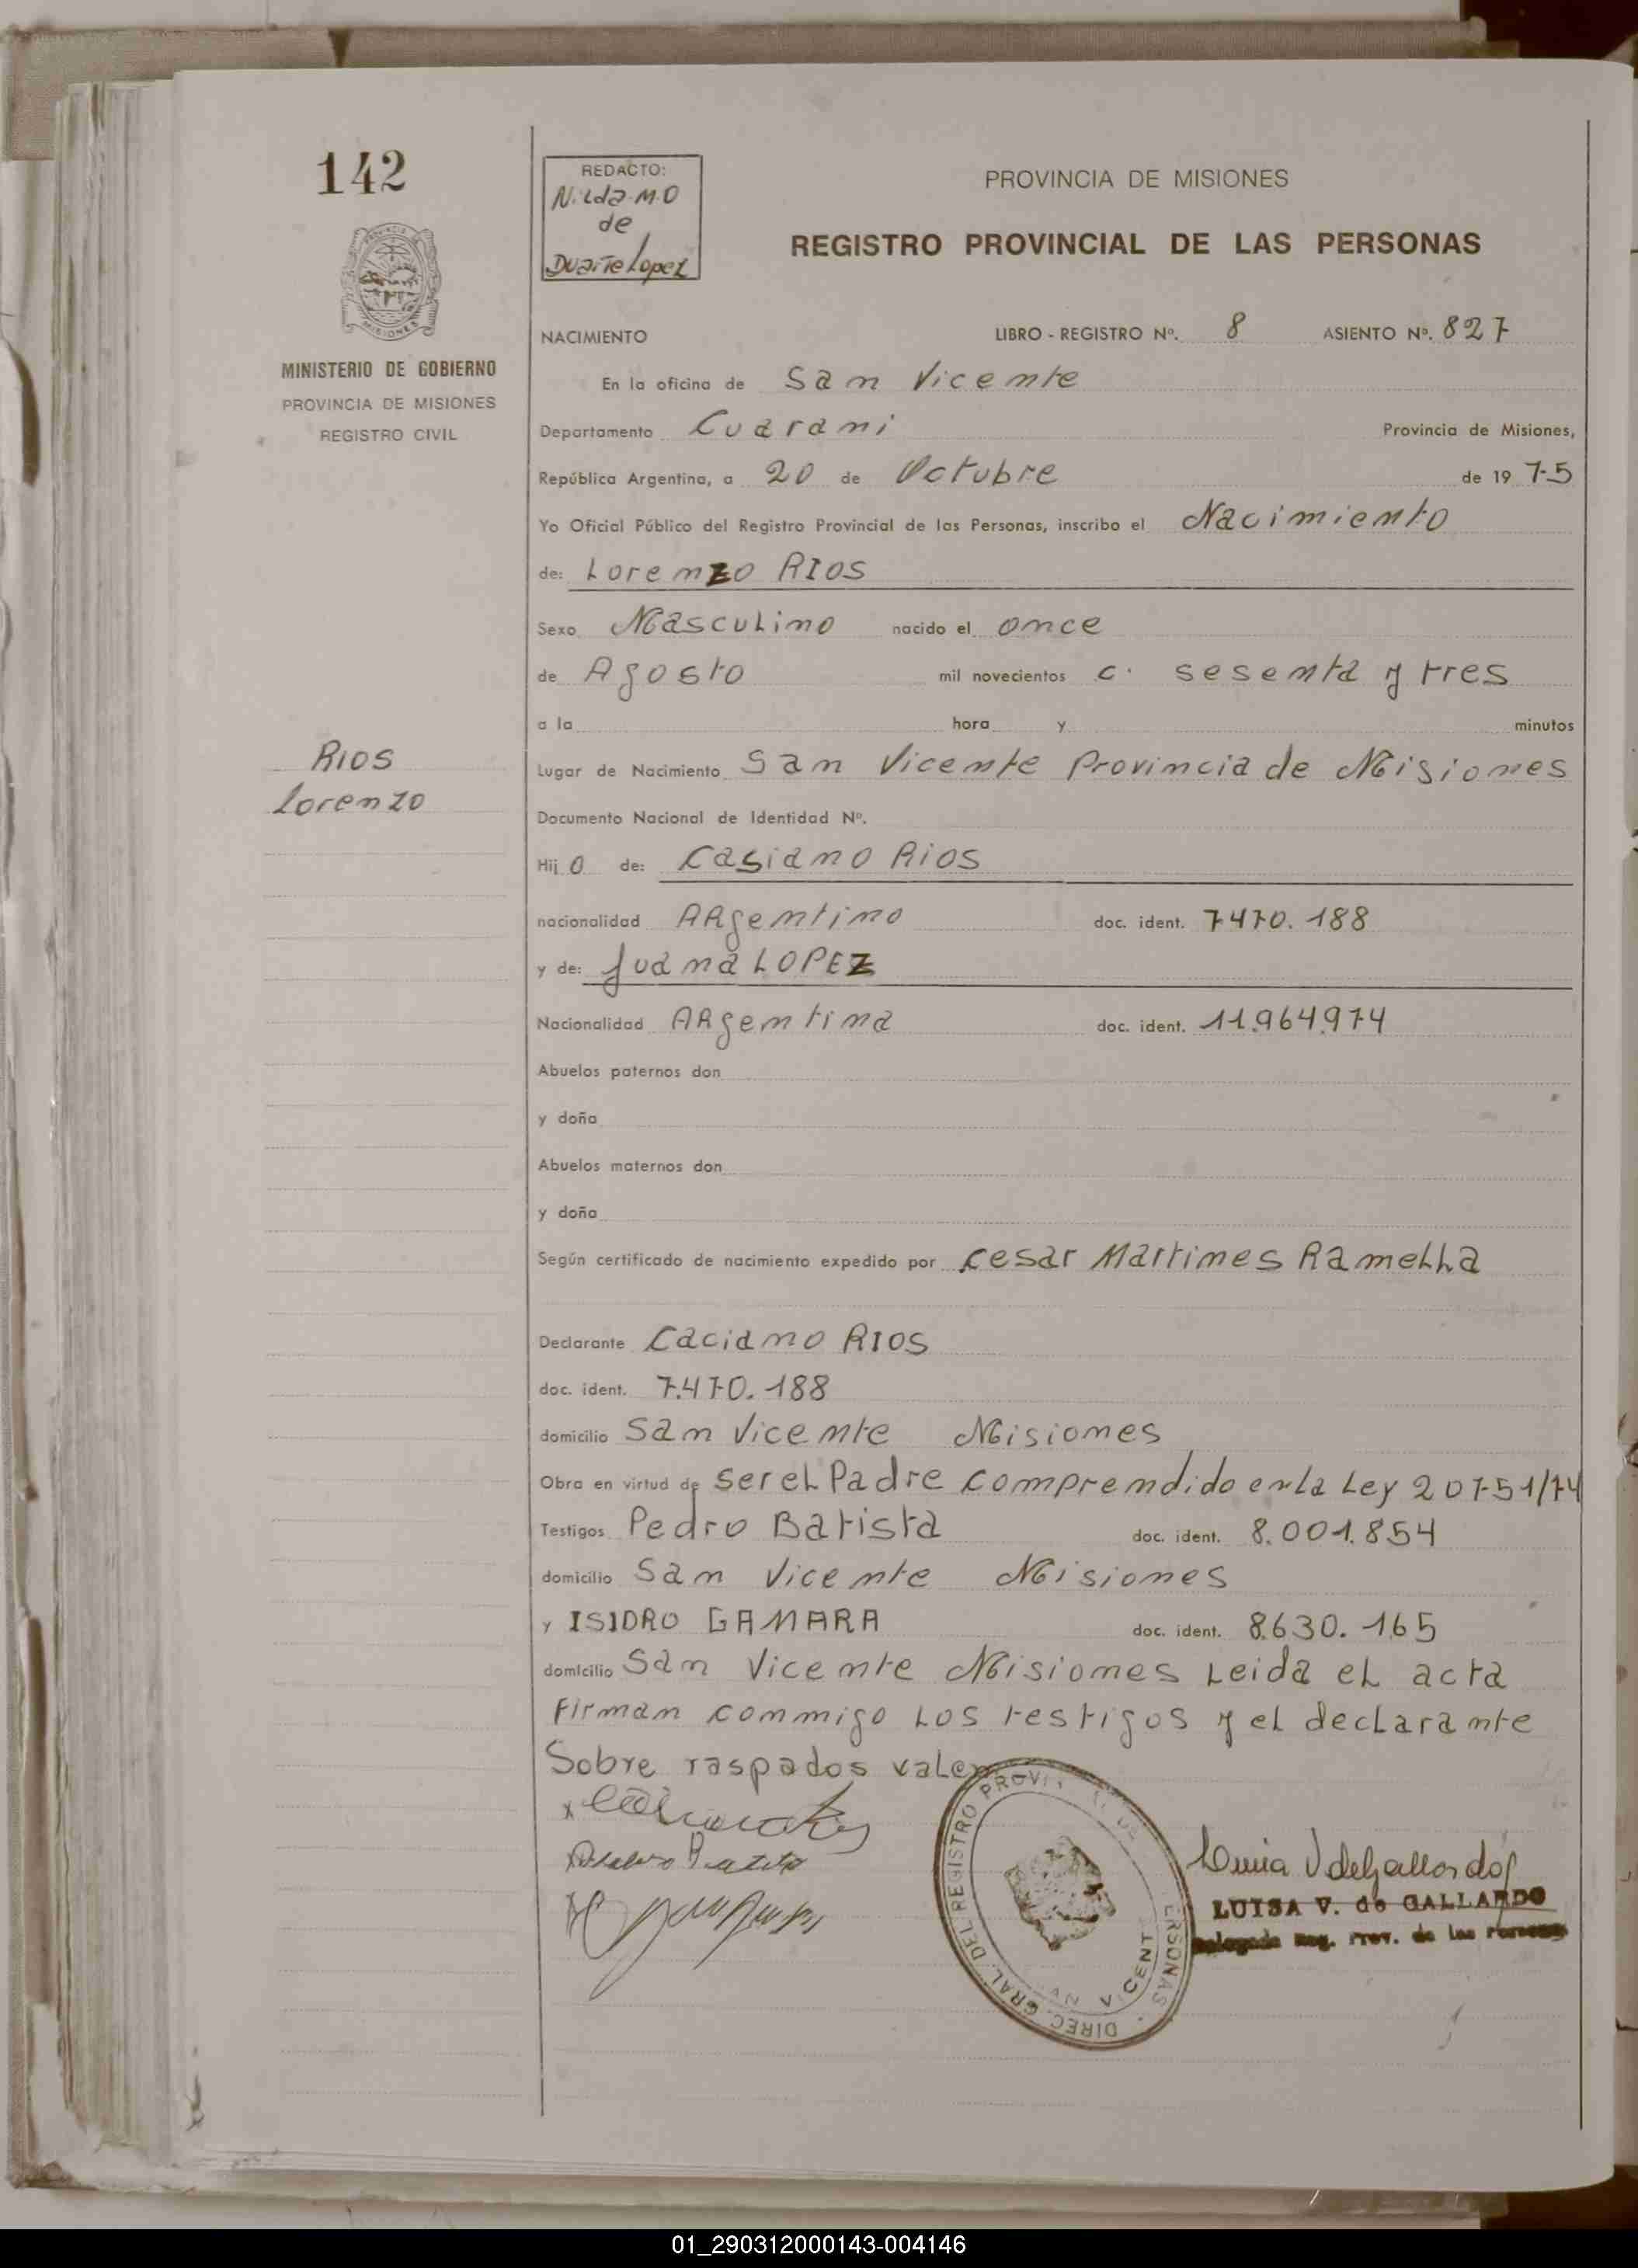 142
MINISTERIO DE GOBIERNO
PROVINCIA DE MISIONES
REGISTRO CIVIL
RIOS
Lorenzo
REDACTO:
Nilda M.O
de
Duarte Lopez
PROVINCIA DE MISIONES
REGISTRO PROVINCIAL DE LAS PERSONAS
NACIMIENTO LIBRO - REGISTRO Nº. 8 ASIENTO Nº. 827
En la oficina de San Vicente
Departamento Guarani Provincia de Misiones,
República Argentina, a 20 de Octubre de 1975
Yo Oficial Público del Registro Provincial de las Personas, inscribo el Nacimiento
de: Lorenzo RIOS
Sexo Masculino nacido el once
de Agosto mil novecientos c. sesenta y tres
a la hora y minutos
Lugar de Nacimiento San Vicente Provincia de Misiones
Documento Nacional de Identidad Nº.
Hij o de: Casiano Rios
nacionalidad ARgentino doc. ident. 7470.188
y de: Juana LOPEZ
Nacionalidad ARgentina doc. ident. 11.964.974
Abuelos paternos don
y doña
Abuelos maternos don
y doña
Según certificado de nacimiento expedido por Cesar Martines Ramella
Declarante Caciano RIOS
doc. ident. 7.470.188
domicilio San Vicente Misiones
Obra en virtud de ser el Padre comprendido en la Ley 20751/74
Testigos Pedro Batista doc. ident. 8.001.854
domicilio San Vicente Misiones
y ISIDRO GAMARA doc. ident. 8.630.165
domicilio San Vicente Misiones Leida el acta
Firman conmigo los testigos y el declarante
Sobre raspados valen
DIREC. GRAL. DEL REGISTRO
VICENT
Luisa V de Gallardo
LUISA V. de GALLARDO
Delegada Reg. Prov. de las Personas
01_290312000143-004146